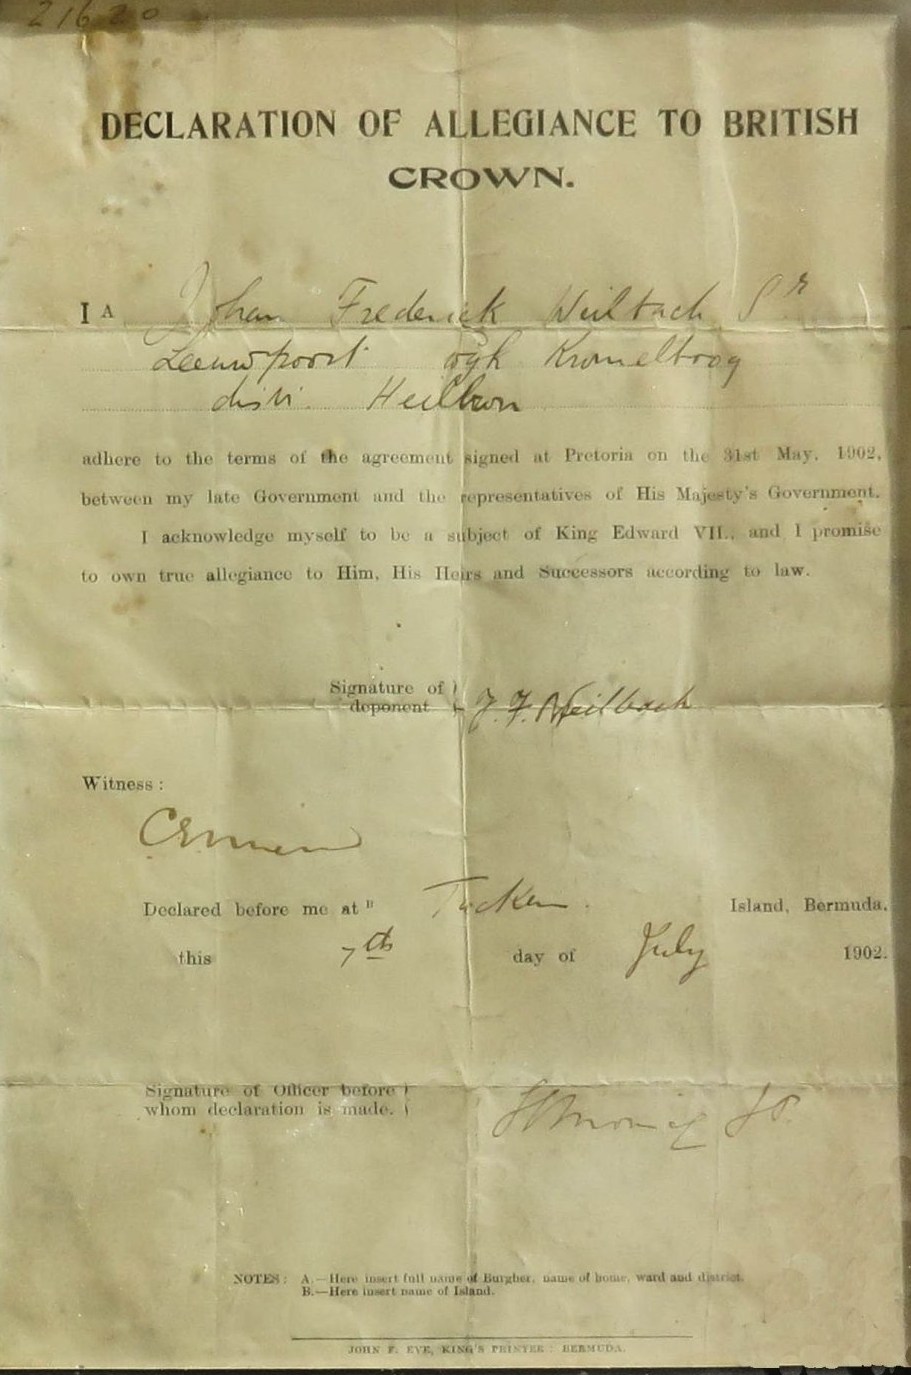 21620
DECLARATION OF ALLEGIANCE TO BRITISH
CROWN.
I A Johan Frederick Weilbach Sr
Leeuwpoort wyk Kromelboog
distr. Heilbron
adhere to the terms of the agreement signed at Pretoria on the 31st May, 1902,
between my late Government and the representatives of His Majesty's Government.
I acknowledge myself to be a subject of King Edward VII., and I promise
to own true allegiance to Him, His Heirs and Successors according to law.
Signature of
deponent J. F. Weilbach
Witness:
Declared before me at B Tucker Island, Bermuda,
this 7th day of July 1902.
Signature of Officer before
whom declaration is made.
NOTES: A.—Here insert full name of Burgher, name of home, ward and district.
B.—Here insert name of Island.
JOHN F. EVE, KING'S PRINTER: BERMUDA.